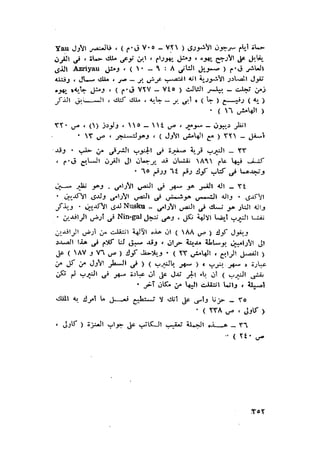 حماة أيام سرجون الأشوري ( ٧٢١ – ٧٠٥ ق٠م ) ، فالعنصر الأول Yau
يقابل على الأرجح يهوه ، ومثل يهورام ، ابن توعي ملك حماة ، في القرن
العاشر ق٠م ( صموئيل الثاني ٨ : ٩ – ١٠ ) ، ومثل Azriyau الذي
تقول المصادر الأشورية انه اغتصب عرش ير – صر ، ملك سمأل ، وقتله
زمن تجلت – بيلسر الثالث ( ٧٤٥ – ٧٢٧ ق٠م ) ، ومثل جايه يهوه
( يه ) رفيـــع ( جا ) = أبي بر – جايه ، ملك كتك ، الســـابق الذكر
( الهامش ١٦ ) ٠
انظر ديبون – سومر ، ص ١١٤ – ١١٥ ، ولودز (١) ، ص ٣٢٠
أسفل – ٣٢١ ( مع الهامش الأول ) ، وهولشتجر ، ص ١٣ ٠
٣٣ – النيرب قرية صغيرة في الجنوب الشرقي من حلب ٠ وقد
كشف فيها عام ١٨٩١ نقشان قد يرجعان الى القرن السابع ق٠م ،
وتجدهما في كتاب كوك رقم ٦٤ ورقم ٦٥ ٠
٣٤ – اله القمر هو سهر في النص الأرامي ٠ وهو نظير ســين
الأكدي ٠ واله الشمس هوشمش في النص الأرامي ولدى الأكديين ٠
واله النار هو نسك في النص الأرامي = Nusku لدى الأكديين ٠ ويذكر
نقشا النيرب أيضا الالهة نكل ، وهي ننجل Nin-gal في أرض الرافدين ٠
ويقول كوك ( ص ١٨٨ ) ان هذه الآلهة انتقلت من أرض الرافدين
الى الأراميين بوساطة مدينة حران ، وقد سبق لنا كلام في هذا الصدد
( الفصل الرابع ، الهامش ٢٣ ) ٠ ويلاحظ كوك ( ص ٧٦ و ١٨٧ ) على
عبارة « سهر بنرب » ( سهر بالنيرب ) ( في السطر الأول من كل من
نقشي النيرب ) أن باء الجر تدل على أن عبادة سهر في النيرب لم تكن
أصيلة ، وانما انتقلت اليها من مكان آخر ٠
٣٥ – حزنا وأسى على أنك لا تستطيع فعـــل ما أمرك به الملك
( كاول ، ص ٢٣٨ ) ٠
٣٦ – هـــذه الجملة تعقيب الـكاتب على جواب العنزة ( كاول ،
ص ٢٤٠ ) ٠
٢٥٢